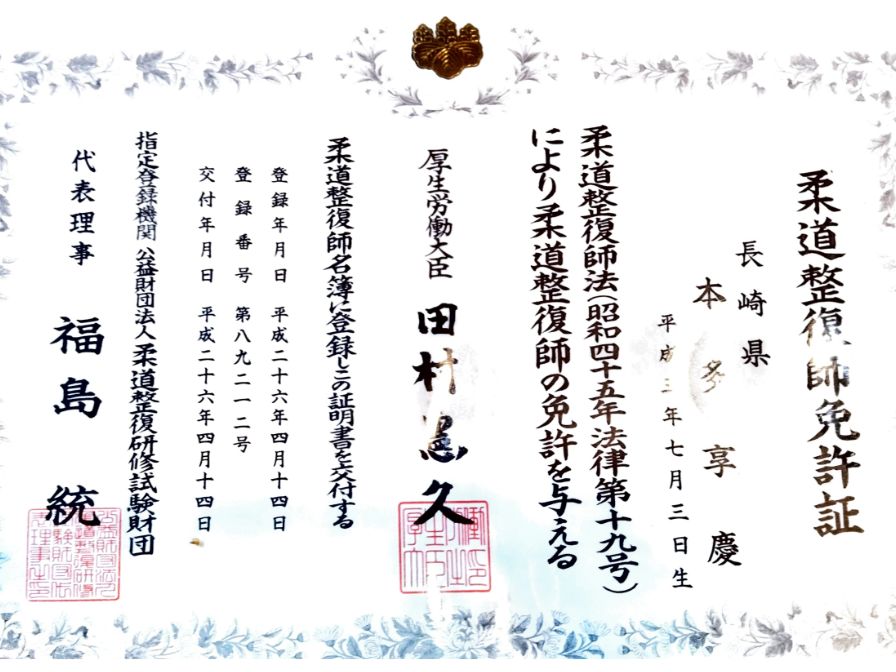 柔道整復師免許証
長崎県
本多享慶
平成三年七月三日生
柔道整復師法(昭和四十五年法律第十九号)
により柔道整復師の免許を与える
厚生労働大臣 田村憲久
柔道整復師名簿に登録しこの証明書を交付する
登録年月日 平成二十六年四月十四日
登録番号 第八九二一二号
交付年月日 平成二十六年四月十四日
指定登録機関 公益財団法人柔道整復研修試験財団
代表理事 福島統